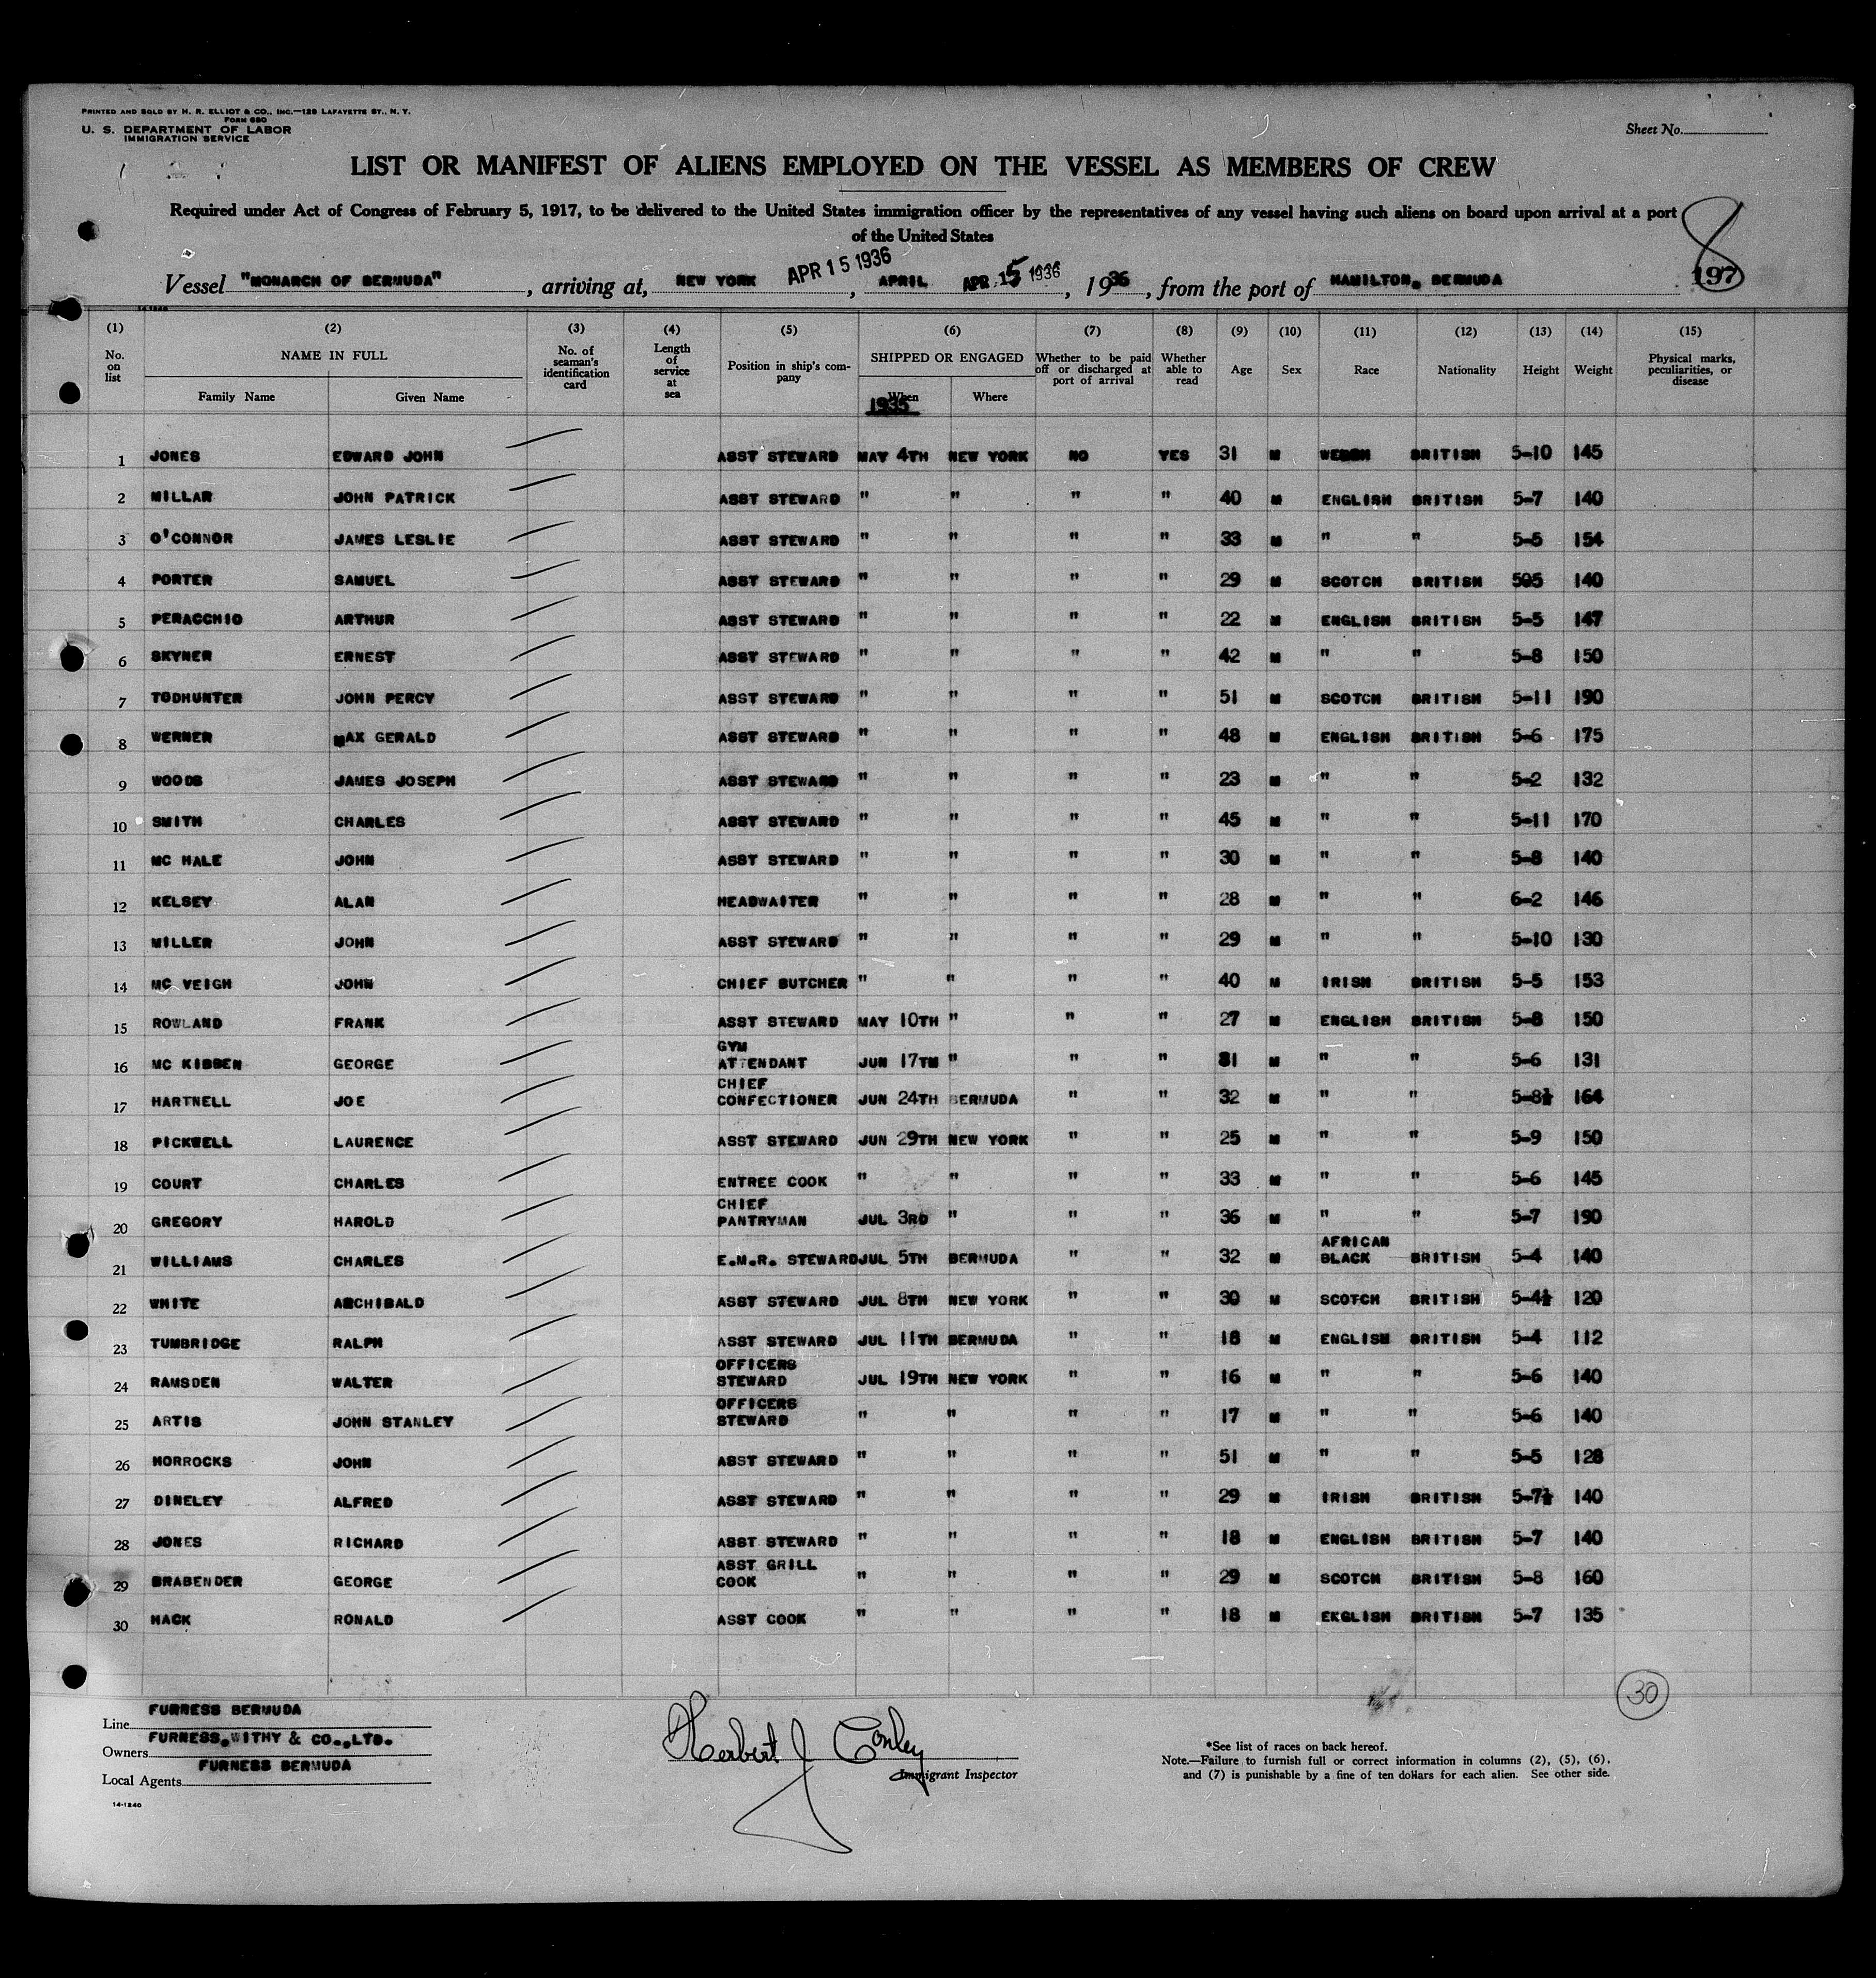 PRINTED AND SOLD BY H. R. ELLIOT & CO., INC.—129 LAFAYETTE ST., N. Y.
FORM 680
U. S. DEPARTMENT OF LABOR
IMMIGRATION SERVICE
Sheet No.
LIST OR MANIFEST OF ALIENS EMPLOYED ON THE VESSEL AS MEMBERS OF CREW
Required under Act of Congress of February 5, 1917, to be delivered to the United States immigration officer by the representatives of any vessel having such aliens on board upon arrival at a port
of the United States
8
197
Vessel "MONARCH OF BERMUDA", arriving at, NEW YORK APR 15 1936, APRIL APR 15 1936, 1936, from the port of HAMILTON, BERMUDA
14-1240
(1) (2) (3) (4) (5) (6) (7) (8) (9) (10) (11) (12) (13) (14) (15)
No. on list NAME IN FULL Family Name Given Name No. of seaman's identification card Length of service at sea Position in ship's company SHIPPED OR ENGAGED When Where Whether to be paid off or discharged at port of arrival Whether able to read Age Sex Race Nationality Height Weight Physical marks, peculiarities, or disease
1935
1 JONES EDWARD JOHN ASST STEWARD MAY 4TH NEW YORK NO YES 31 M WELSH BRITISH 5-10 145
2 MILLAR JOHN PATRICK ASST STEWARD " " " " 40 M ENGLISH BRITISH 5-7 140
3 O'CONNOR JAMES LESLIE ASST STEWARD " " " " 33 M " " 5-5 154
4 PORTER SAMUEL ASST STEWARD " " " " 29 M SCOTCH BRITISH 505 140
5 PERACCHIO ARTHUR ASST STEWARD " " " " 22 M ENGLISH BRITISH 5-5 147
6 SKYNER ERNEST ASST STEWARD " " " " 42 M " " 5-8 150
7 TODHUNTER JOHN PERCY ASST STEWARD " " " " 51 M SCOTCH BRITISH 5-11 190
8 WERNER MAX GERALD ASST STEWARD " " " " 48 M ENGLISH BRITISH 5-6 175
9 WOODS JAMES JOSEPH ASST STEWARD " " " " 23 M " " 5-2 132
10 SMITH CHARLES ASST STEWARD " " " " 45 M " " 5-11 170
11 MC HALE JOHN ASST STEWARD " " " " 30 M " " 5-8 140
12 KELSEY ALAN HEADWAITER " " " " 28 M " " 6-2 146
13 MILLER JOHN ASST STEWARD " " " " 29 M " " 5-10 130
14 MC VEIGH JOHN CHIEF BUTCHER " " " " 40 M IRISH BRITISH 5-5 153
15 ROWLAND FRANK ASST STEWARD MAY 10TH " " " 27 M ENGLISH BRITISH 5-8 150
16 MC KIBBEN GEORGE GYM ATTENDANT JUN 17TH " " " 31 M " " 5-6 131
17 HARTNELL JOE CHIEF CONFECTIONER JUN 24TH BERMUDA " " 32 M " " 5-8½ 164
18 PICKWELL LAURENCE ASST STEWARD JUN 29TH NEW YORK " " 25 M " " 5-9 150
19 COURT CHARLES ENTREE COOK " " " " 33 M " " 5-6 145
20 GREGORY HAROLD CHIEF PANTRYMAN JUL 3RD " " " 36 M " " 5-7 190
21 WILLIAMS CHARLES E.M.R. STEWARD JUL 5TH BERMUDA " " 32 M AFRICAN BLACK BRITISH 5-4 140
22 WHITE ARCHIBALD ASST STEWARD JUL 8TH NEW YORK " " 30 M SCOTCH BRITISH 5-4½ 120
23 TUMBRIDGE RALPH ASST STEWARD JUL 11TH BERMUDA " " 18 M ENGLISH BRITISH 5-4 112
24 RAMSDEN WALTER OFFICERS STEWARD JUL 19TH NEW YORK " " 16 M " " 5-6 140
25 ARTIS JOHN STANLEY OFFICERS STEWARD " " " " 17 M " " 5-6 140
26 HORROCKS JOHN ASST STEWARD " " " " 51 M " " 5-5 128
27 DINELEY ALFRED ASST STEWARD " " " " 29 M IRISH BRITISH 5-7½ 140
28 JONES RICHARD ASST STEWARD " " " " 18 M ENGLISH BRITISH 5-7 140
29 BRABENDER GEORGE ASST GRILL COOK " " " " 29 M SCOTCH BRITISH 5-8 160
30 HACK RONALD ASST COOK " " " " 18 M EKGLISH BRITISH 5-7 135
30
Line FURNESS BERMUDA
Owners FURNESS, WITHY & CO., LTD.
Local Agents FURNESS BERMUDA
14-1240
Herbert J Conley
Immigrant Inspector
*See list of races on back hereof.
Note.—Failure to furnish full or correct information in columns (2), (5), (6),
and (7) is punishable by a fine of ten dollars for each alien. See other side.